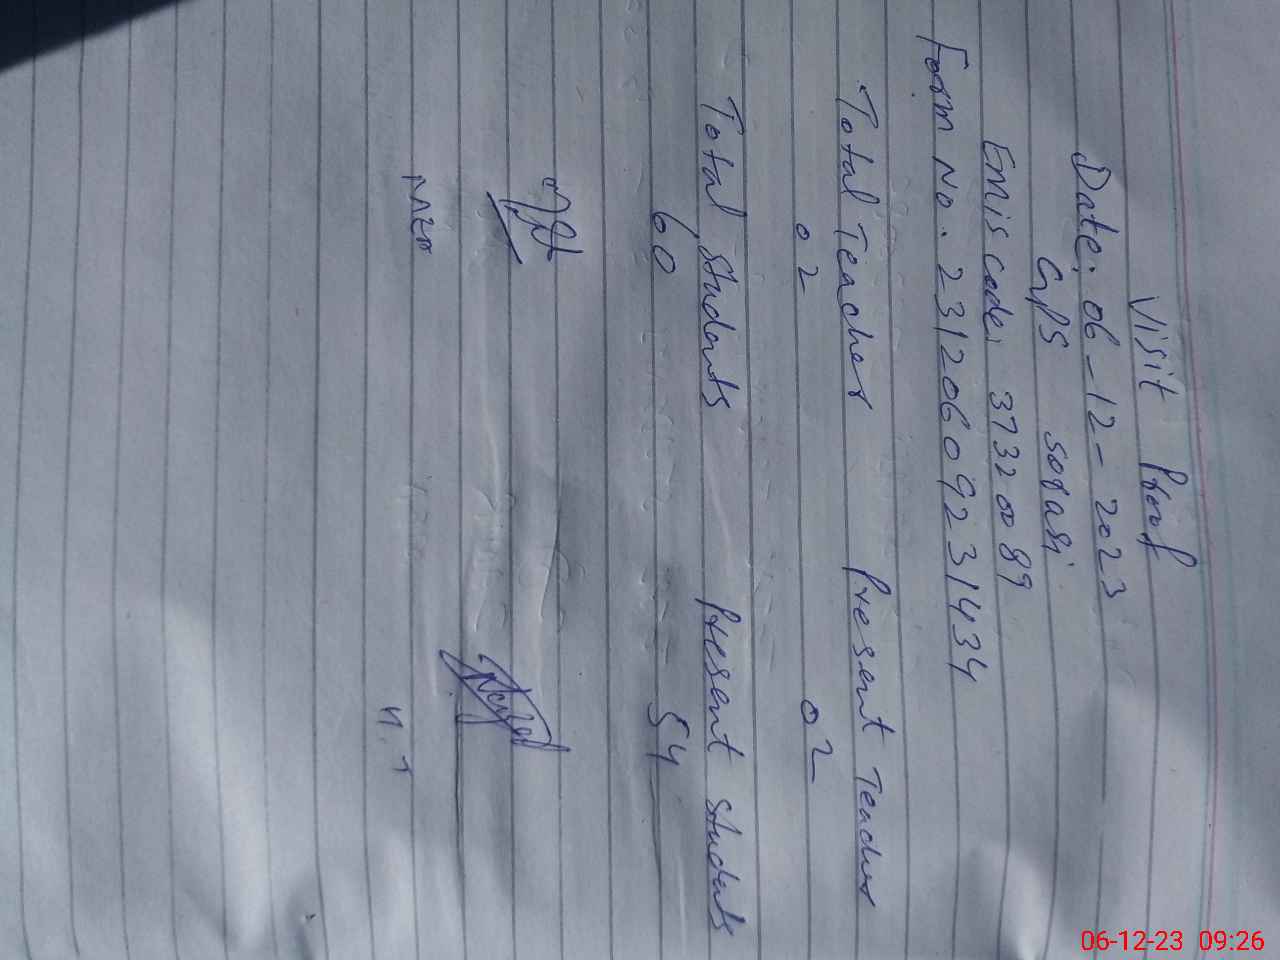 Visit Proof
Date: 06-12-2023
GPS Sorasi
Emis code: 37320089
Form No. 23120609231434
Total Teacher Present Teacher
02 02
Total Students Present Students
60 54
H.T
06-12-23 09:26